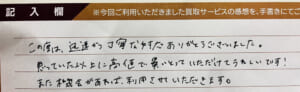 記入欄 ※今回ご利用いただきました買取サービスの感想を、手書きにてご
この度は、迅速かつ丁寧な対応ありがとうございました。
思っていた以上に高値で買いとっていただけてうれしいです!
また機会があれば、利用させていただきます。